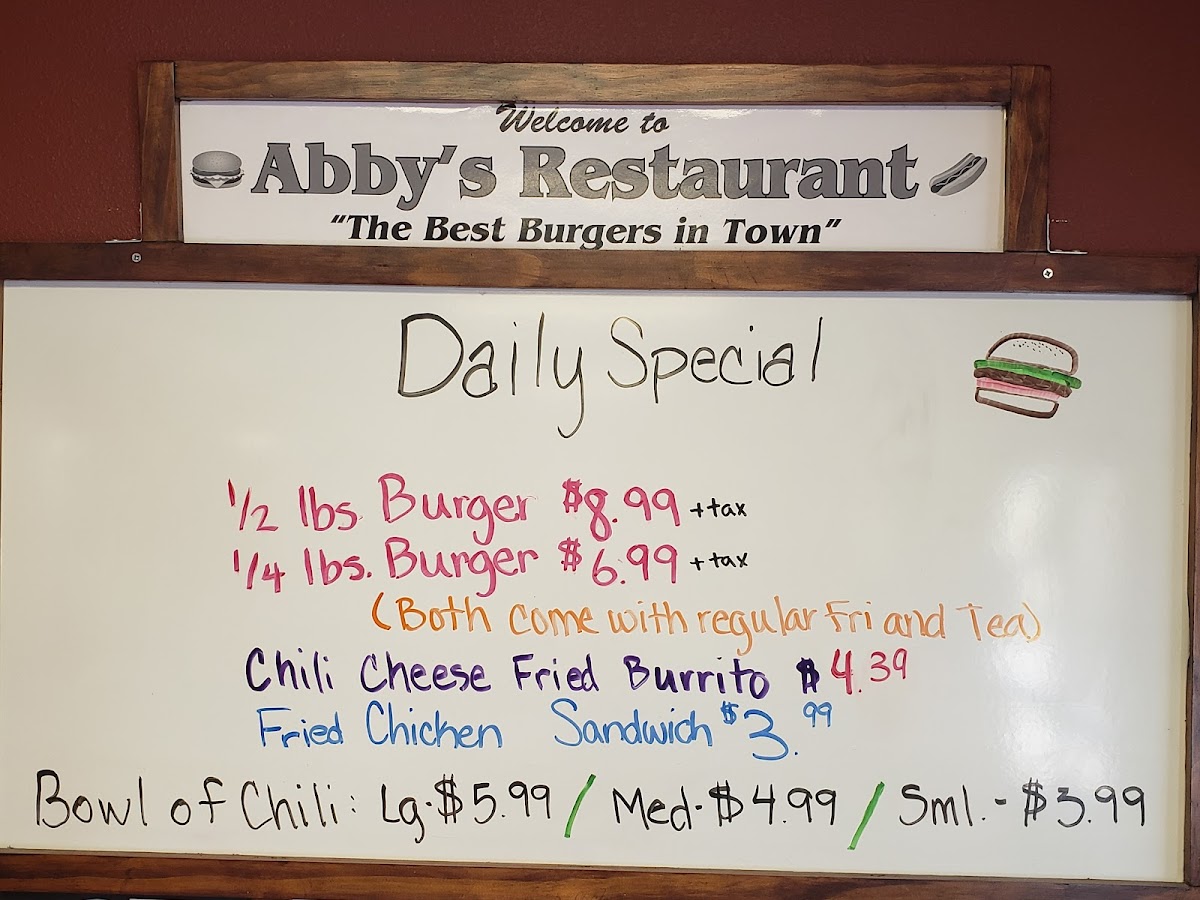 Welcome to
Abby's Restaurant
"The Best Burgers in Town"
Daily Special
1/2 lbs. Burger $8.99 + tax
1/4 lbs. Burger $6.99 + tax
(Both come with regular Fri and Tea)
Chili Cheese Fried Burrito $4.39
Fried Chicken Sandwich $3.99
Bowl of Chili: Lg-$5.99 / Med-$4.99 / Sml.-$3.99